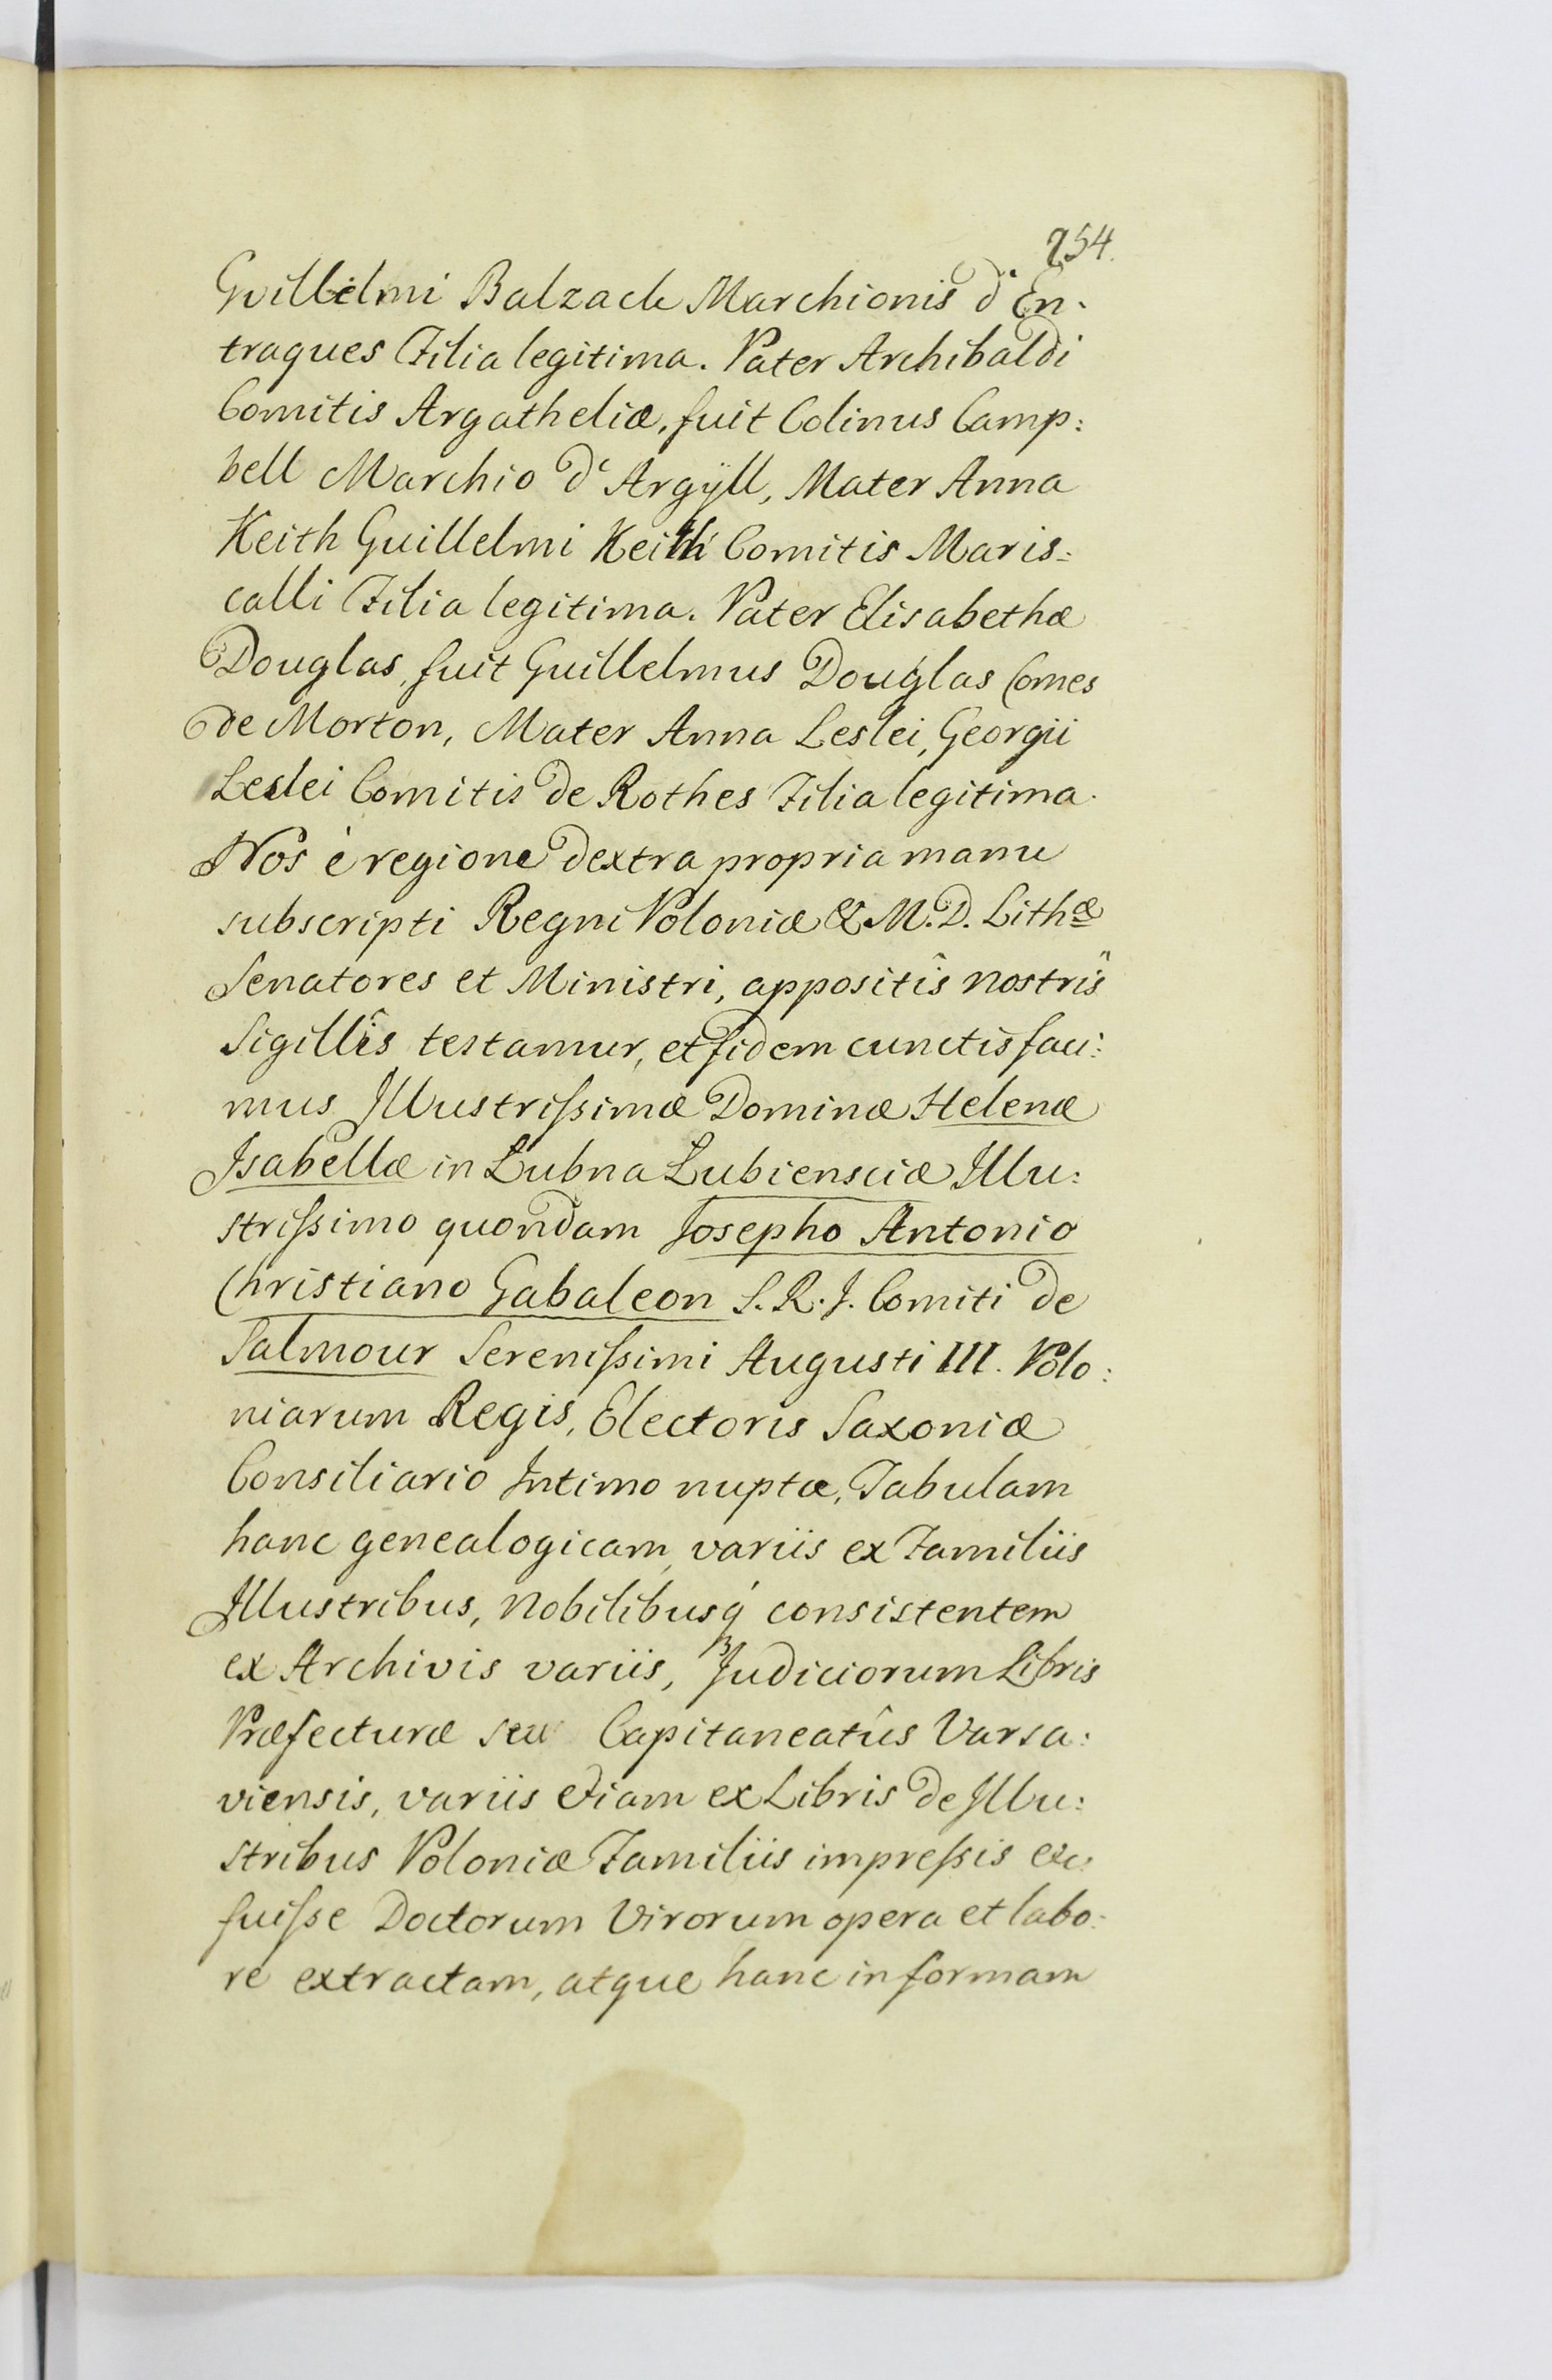 254.
Guillelmi Balzack Marchionis d'En-
tragues Filia legitima. Pater Archibaldi
Comitis Argatheliæ, fuit Colinus Camp:
bell Marchio d'Argÿll, Mater Anna
Keith Guillelmi Keith Comitis Maris:
calli Filia legitima. Pater Elisabethæ
Douglas, fuit Guillelmus Douglas Comes
de Morton, Mater Anna Leslei, Georgii
Leslei Comitis de Rothes Filia legitima.
Nos è regione dextra propria manu
subscripti Regni Poloniæ & M. D. Lithæ
Senatores et Ministri, appositîs nostrîs
Sigillîs testamur, et fidem cunctis faci:
mus Illustrißimæ Dominæ Helenæ
Isabellæ in Łubna Łubiensciæ Illu:
strißimo quondam Josepho Antonio
Christiano Gabaleon S. R. J. Comiti de
Salmour Serenißimi Augusti III. Polo:
niarum Regis, Electoris Saxoniæ
Consiliario Intimo nuptæ, Tabulam
hanc genealogicam, variis ex Familiis
Illustribus, Nobilibusq́ consistentem
ex Archivis variis, Judiciorum Libris
Præfecturæ seu Capitaneatûs Varsa:
viensis, variis etiam ex Libris de Illu:
stribus Poloniæ Familiis impreßis &c.
fuiße Doctorum Virorum opera et labo:
re extractam, atque hanc in formam